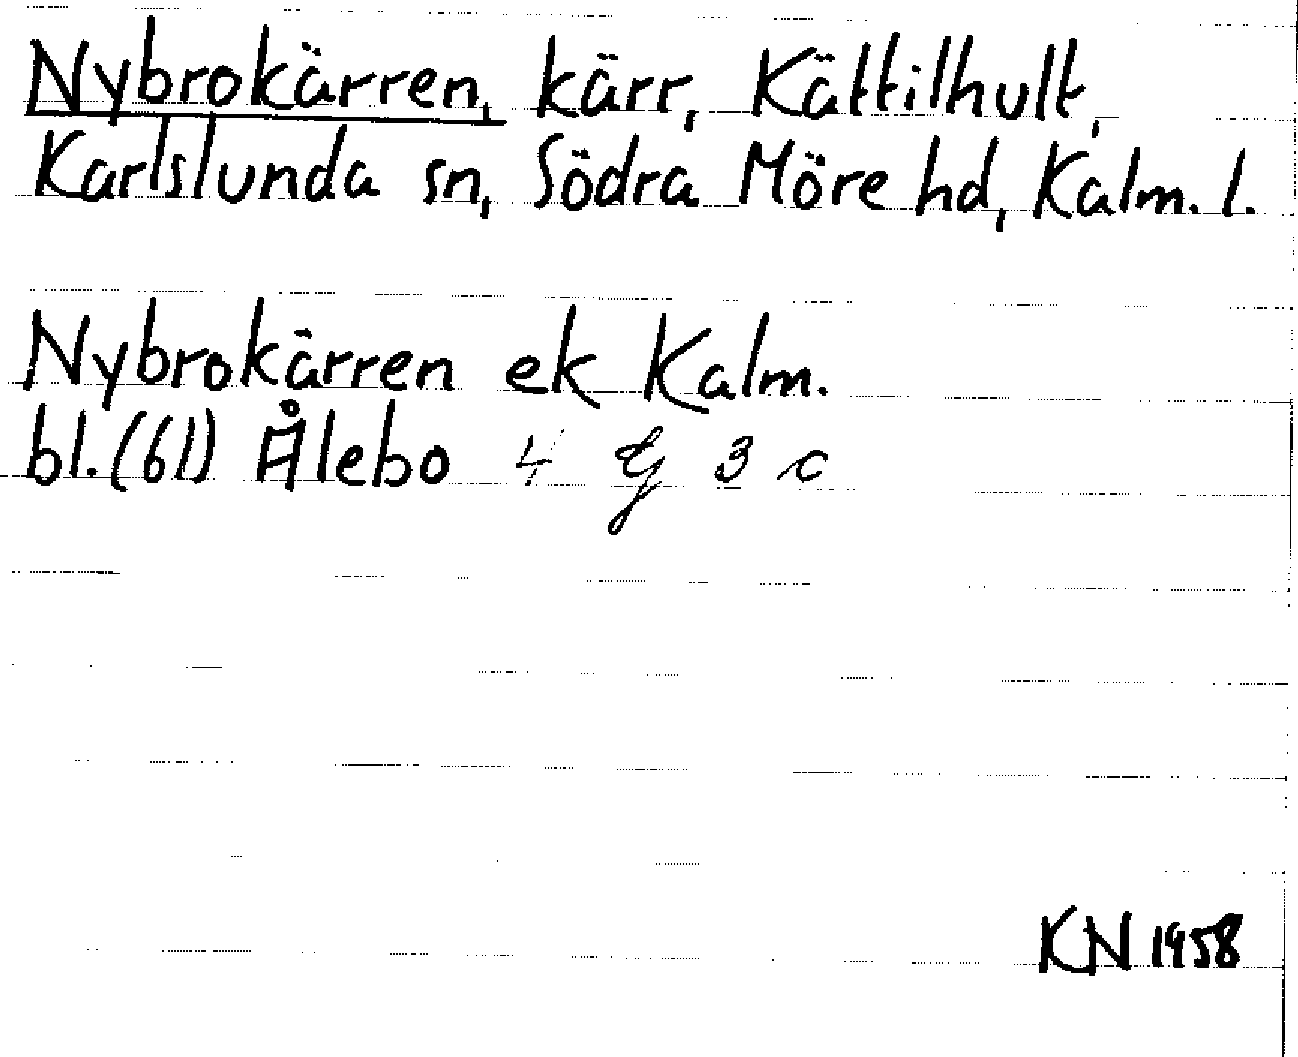 Nybrokärren, kärr, Kättilhult,
Karlslunda sn, Södra Möre hd, Kalm. l.
Nybrokärren ek Kalm.
bl. (61) Ålebo 4 G 3 c
KN 1958